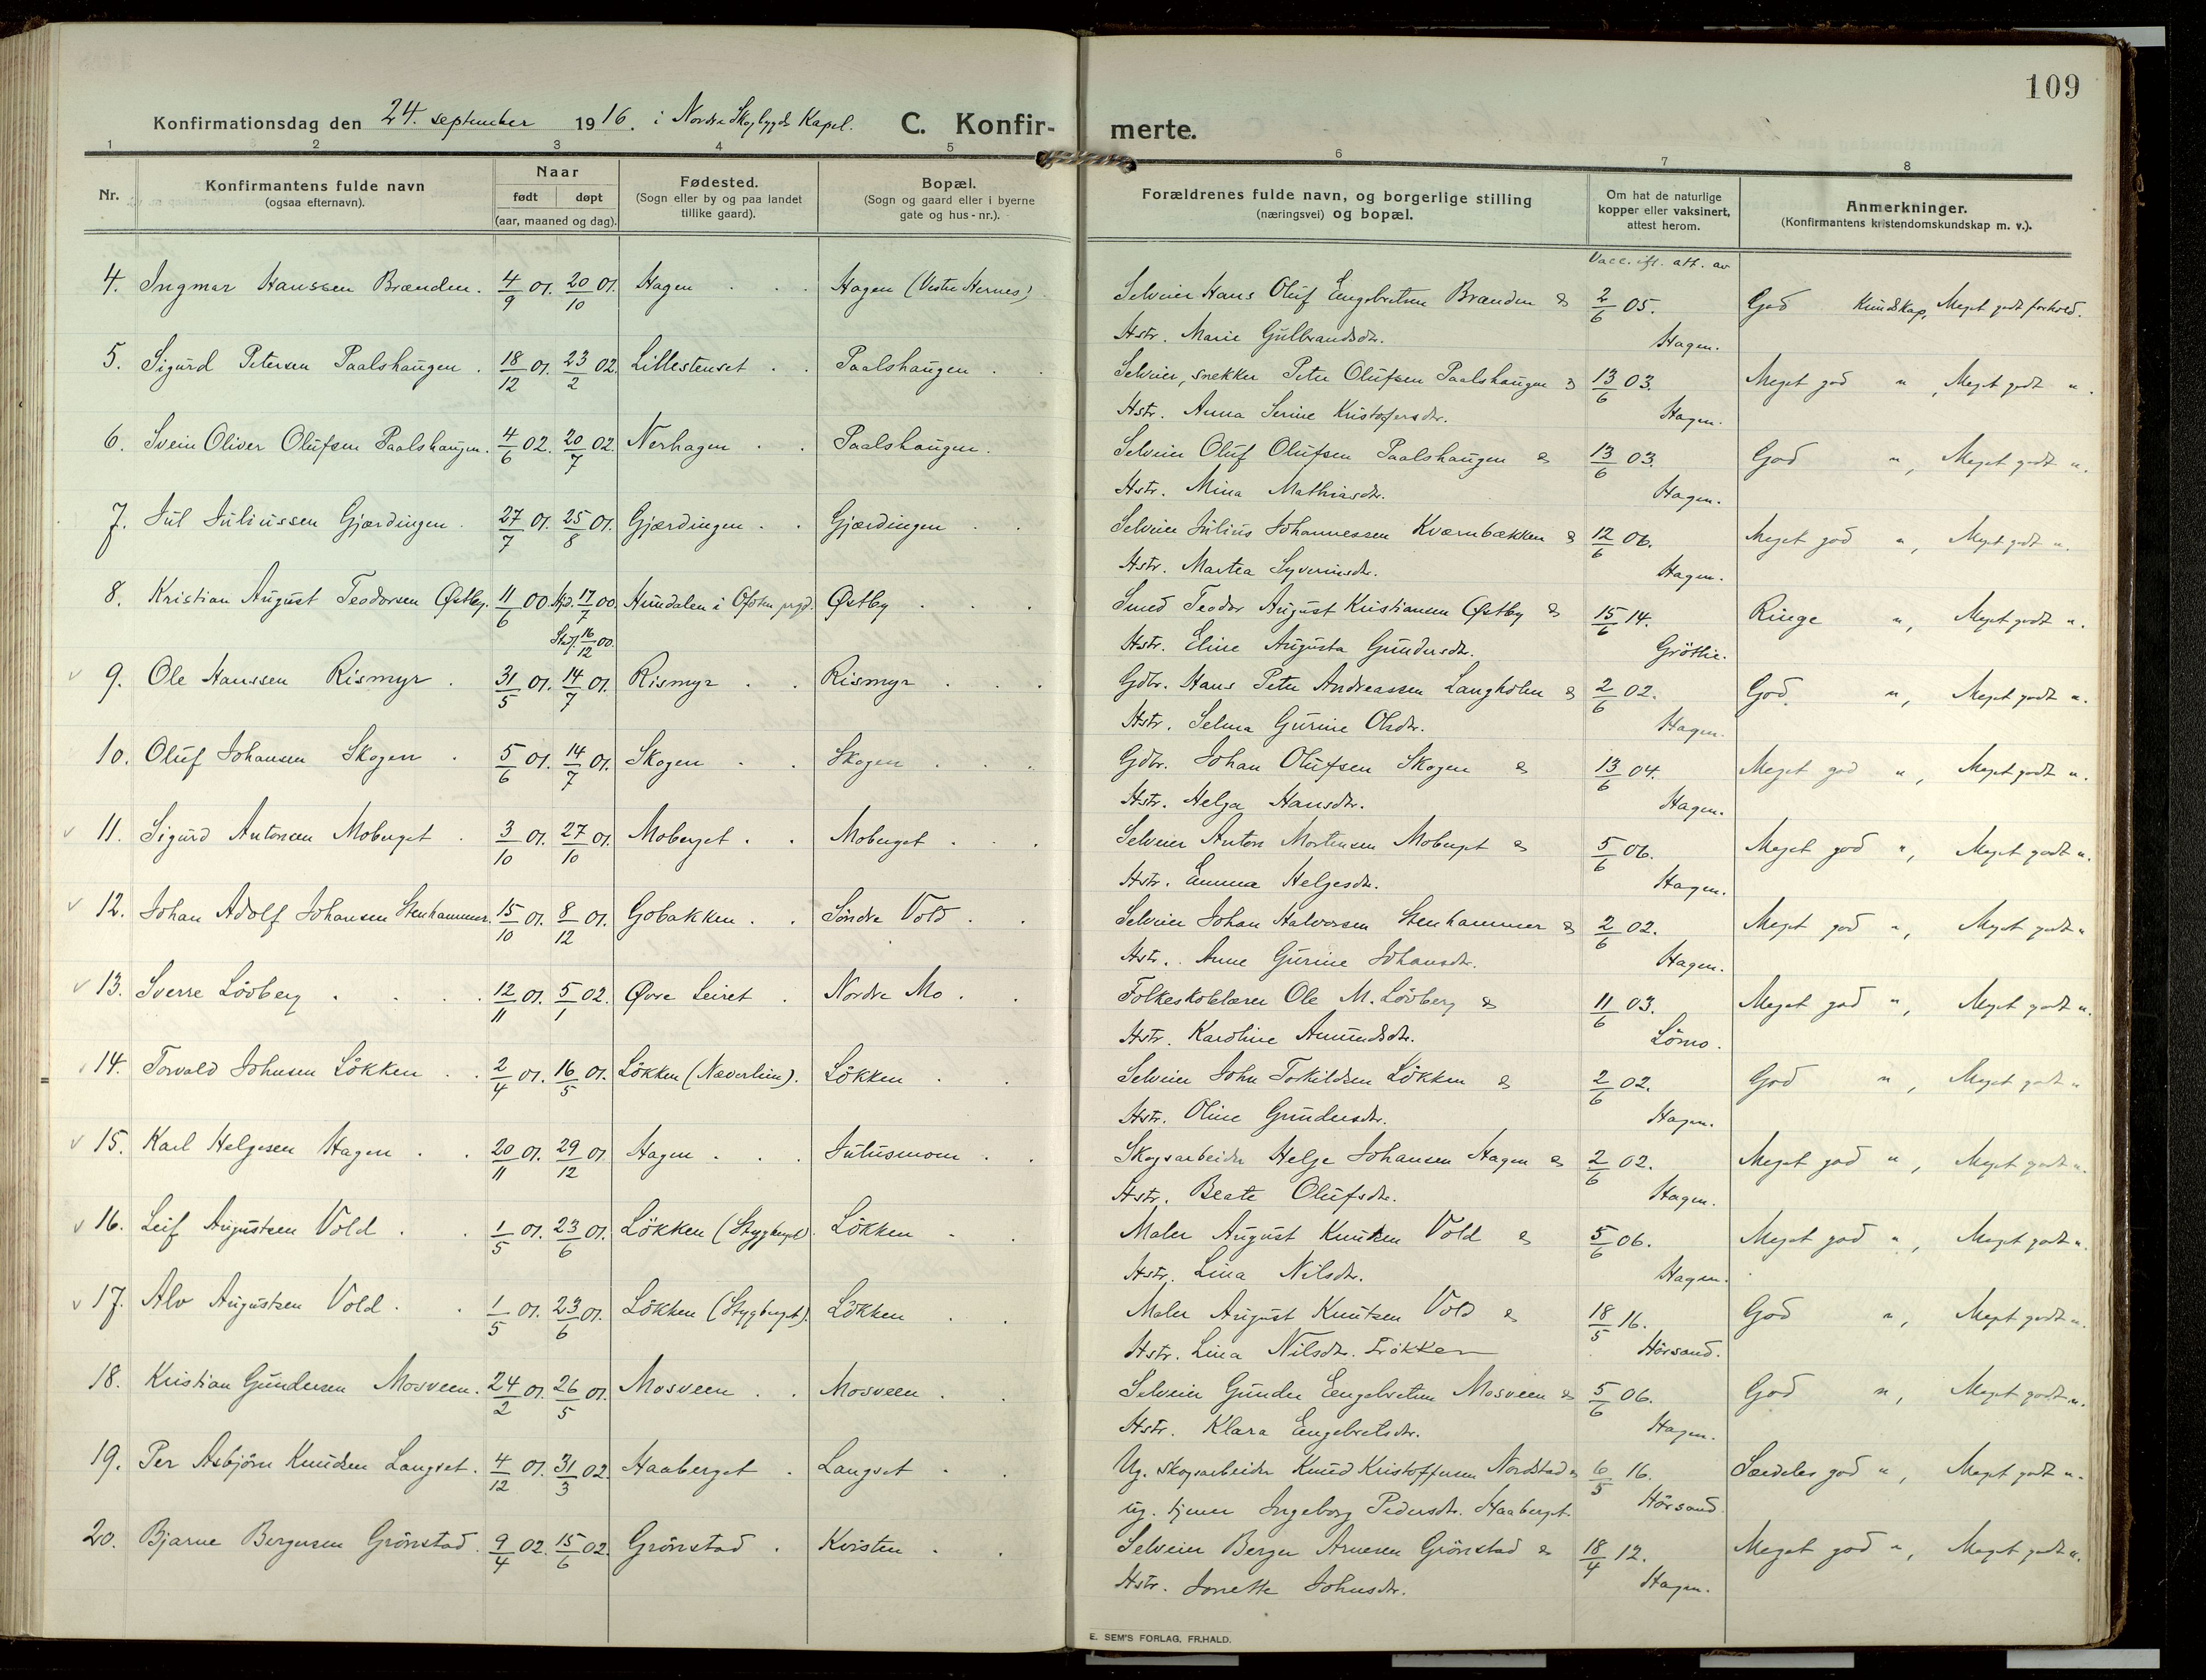 109
Konfirmationsdag den 24. september 1916. i Nordre Skogbygds Kapel. C. Konfir- merte.
1 2 3 4 5 6 7 8
Nr. Konfirmantens fulde navn (ogsaa efternavn). Naar født døpt (aar, maaned og dag). Fødested. (Sogn eller by og paa landet tillike gaard). Bopæl. (Sogn og gaard eller i byerne gate og hus-nr.). Forældrenes fulde navn, og borgerlige stilling (næringsvei) og bopæl. Om hat de naturlige kopper eller vaksinert, attest herom. Anmerkninger. (Konfirmantens kristendomskundskap m. v.).
Vacc. ifl. att. av
4. Ingmar Hanssen Brænden. 4/9 01. 20/10 01. Hagen Hagen (Vestre Hernes) Selveier Hans Oluf Engebretsen Brænden & 2/6 05. God Kundskap, Meget godt forhold.
Hstr. Marie Gulbrandsdtr. Hagen.
5. Sigurd Petersen Paalshaugen. 18/12 01. 23/2 02. Lillestenset Paalshaugen Selveier, snekker Peter Olufsen Paalshaugen & 13/6 03. Meget god ", Meget godt ".
Hstr. Anna Serine Kristofersdtr. Hagen.
6. Svein Oliver Olufsen Paalshaugen. 4/6 02. 20/7 02. Nerhagen Paalshaugen. Selveier Oluf Olufsen Paalshaugen & 13/6 03. God ", Meget godt ".
Hstr. Mina Mathiasdtr. Hagen.
7. Jul Juliussen Gjærdingen. 27/7 01. 25/8 01. Gjærdingen Gjærdingen Selveier Julius Johannessen Kværnbækken & 12/6 06. Meget god ", Meget godt ".
Hstr. Martea Syverinsdtr. Hagen.
8. Kristian August Teodorsen Østby. 11/6 00. Hjd. 17/7 00. Hundalen i Ofoten prgd. Østby Smed Teodor August Kristiansen Østby & 15/6 14. Ringe ", Meget godt ".
Stadf. 16/12 00. Hstr. Eline Augusta Gundersdtr. Gröttie.
9. Ole Hanssen Rismyr. 31/5 01. 14/7 01. Rismyr Rismyr Gdbr. Hans Peter Andreassen Langholen & 2/6 02. God ", Meget godt ".
Hstr. Selma Gurine Olsdtr. Hagen.
10. Oluf Johansen Skogen. 5/6 01. 14/7 01. Skogen Skogen Gdbr. Johan Olufsen Skogen & 13/6 04. Meget god ", Meget godt ".
Hstr. Helga Hansdtr. Hagen.
11. Sigurd Antonsen Moberget. 3/10 01. 27/10 01. Moberget Moberget Selveier Anton Mortensen Moberget & 5/6 06. Meget god ", Meget godt ".
Hstr. Emma Helgesdtr. Hagen.
12. Johan Adolf Johansen Stenhammer. 15/10 01. 8/12 01. Gobakken Söndre Vold Selveier Johan Halvorsen Stenhammer & 2/6 02. Meget god ", Meget godt "
Hstr. Anne Gurine Johansdtr. Hagen.
13. Sverre Lövberg 12/11 01. 5/1 02. Øvre Leiret Nordre Mo Folkeskolelærer Ole M. Lövberg & 11/6 03. Meget god ", Meget godt ".
Hstr. Karoline Amundsdtr. Lömo.
14. Torvald Johnsen Lökken 2/4 01. 16/5 01. Lökken (Næverlien). Lökken Selveier John Torkildsen Lökken & 2/6 02. God ", Meget godt "
Hstr. Oline Gundersdtr. Hagen.
15. Karl Helgesen Hagen 20/11 01. 29/12 01 Hagen Julusmoen Skogsarbeider Helge Johansen Hagen & 2/6 02. Meget god ", Meget godt ".
Hstr. Beate Olufsdtr. Hagen.
16. Leif Augustsen Vold 1/5 01. 23/6 01. Lökken (Stygberget). Lökken Maler August Knutsen Vold & 5/6 06. Meget god ", Meget godt ".
Hstr. Lina Nilsdtr. Hagen.
17. Alv Augustsen Vold. 1/5 01. 23/6 01. Lökken (Stygberget). Lökken Maler August Knutsen Vold & 18/5 16. God ", Meget godt ".
Hstr. Lina Nilsdtr. Lökken Hörsand.
18. Kristian Gundersen Mosveen. 24/2 01. 26/5 01. Mosveen Mosveen Selveier Gunder Engebretsen Mosveen & 5/6 06. God ", Meget godt ".
Hstr. Klara Engebretsdtr. Hagen.
19. Per Asbjörn Knudsen Langset. 4/12 01. 31/3 02. Haaberget Langset Ug. skogsarbeider Knud Kristoffersen Nordstad & 6/5 16. Særdeles god ", Meget godt ".
ug. tjener Ingeborg Pedersdtr. Haaberget. Hörsand
20. Bjarne Bergersen Grönstad. 9/4 02. 15/6 02. Grönstad Kvisten Selveier Berger Arnesen Grönstad & 18/4 12. Meget god ", Meget godt ".
Hstr. Jonette Johnsdtr. Hagen.
E. SEM'S FORLAG, FR.HALD.